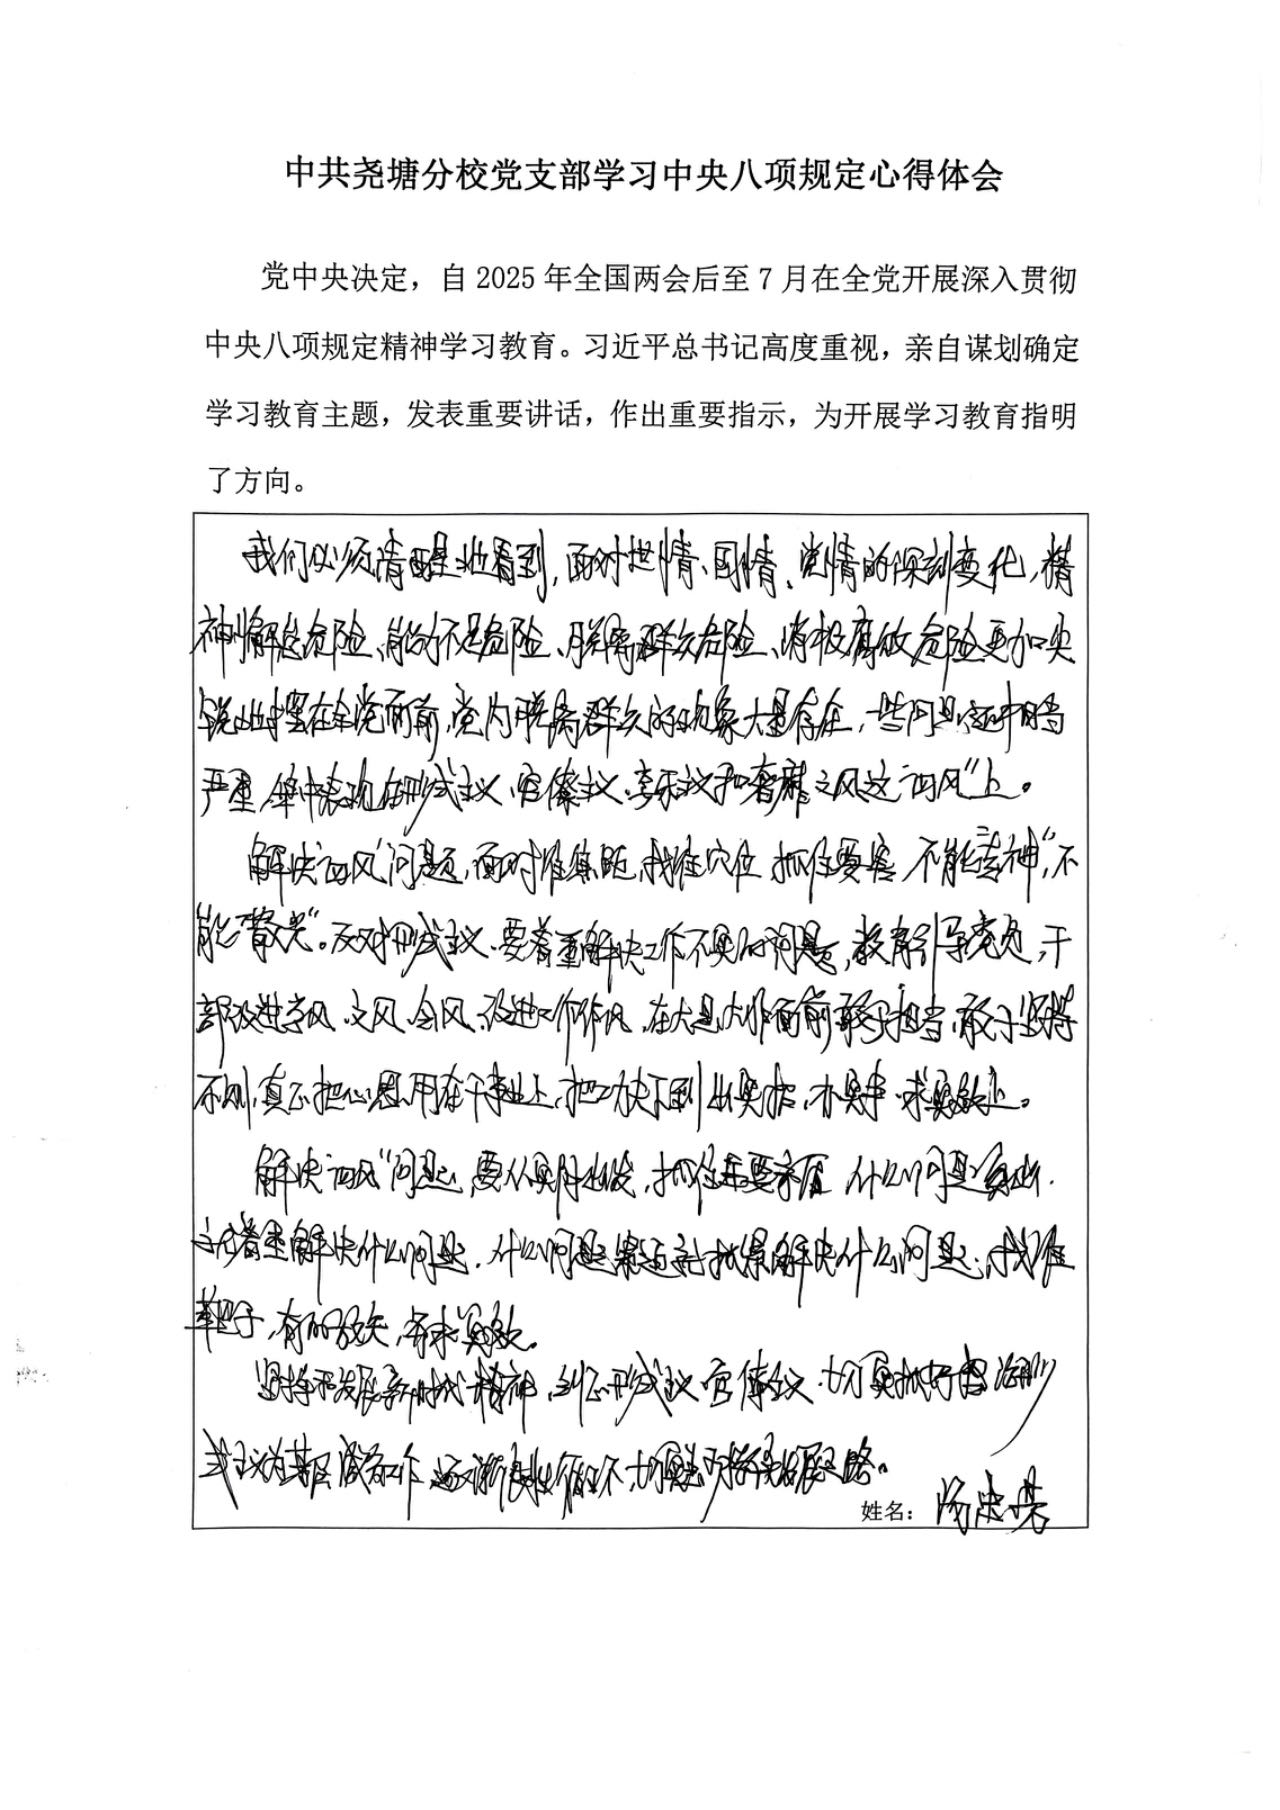 中共尧塘分校党支部学习中央八项规定心得体会
党中央决定，自 2025 年全国两会后至 7 月在全党开展深入贯彻
中央八项规定精神学习教育。习近平总书记高度重视，亲自谋划确定
学习教育主题，发表重要讲话，作出重要指示，为开展学习教育指明
了方向。
我们必须清醒地看到，面对世情、国情、党情的深刻变化，精
神懈怠危险、能力不足危险、脱离群众危险、消极腐败危险更加尖
锐地摆在全党面前，党内脱离群众的现象大量存在，一些问题还相当
严重，集中表现在形式主义、官僚主义、享乐主义和奢靡之风这“四风”上。
解决“四风”问题，要对准焦距，找准穴位，抓住要害，不能“走神”，不
能“散光”。反对形式主义，要着重解决工作不实的问题，教育引导党员、干
部改进学风、文风、会风，改进工作作风，在大是大非面前敢于担当、敢于坚持
原则，真正把心思用在干事业上，把功夫下到出实招、办实事、求实效上。
解决“四风”问题，要从实际出发，抓住主要矛盾，什么问题突出，
就着重解决什么问题，什么问题紧迫就抓紧解决什么问题，找准
靶子，有的放矢，务求实效。
坚持和发展新时代精神，纠正形式主义、官僚主义，切实抓好整治形
式主义为基层减负工作
姓名：